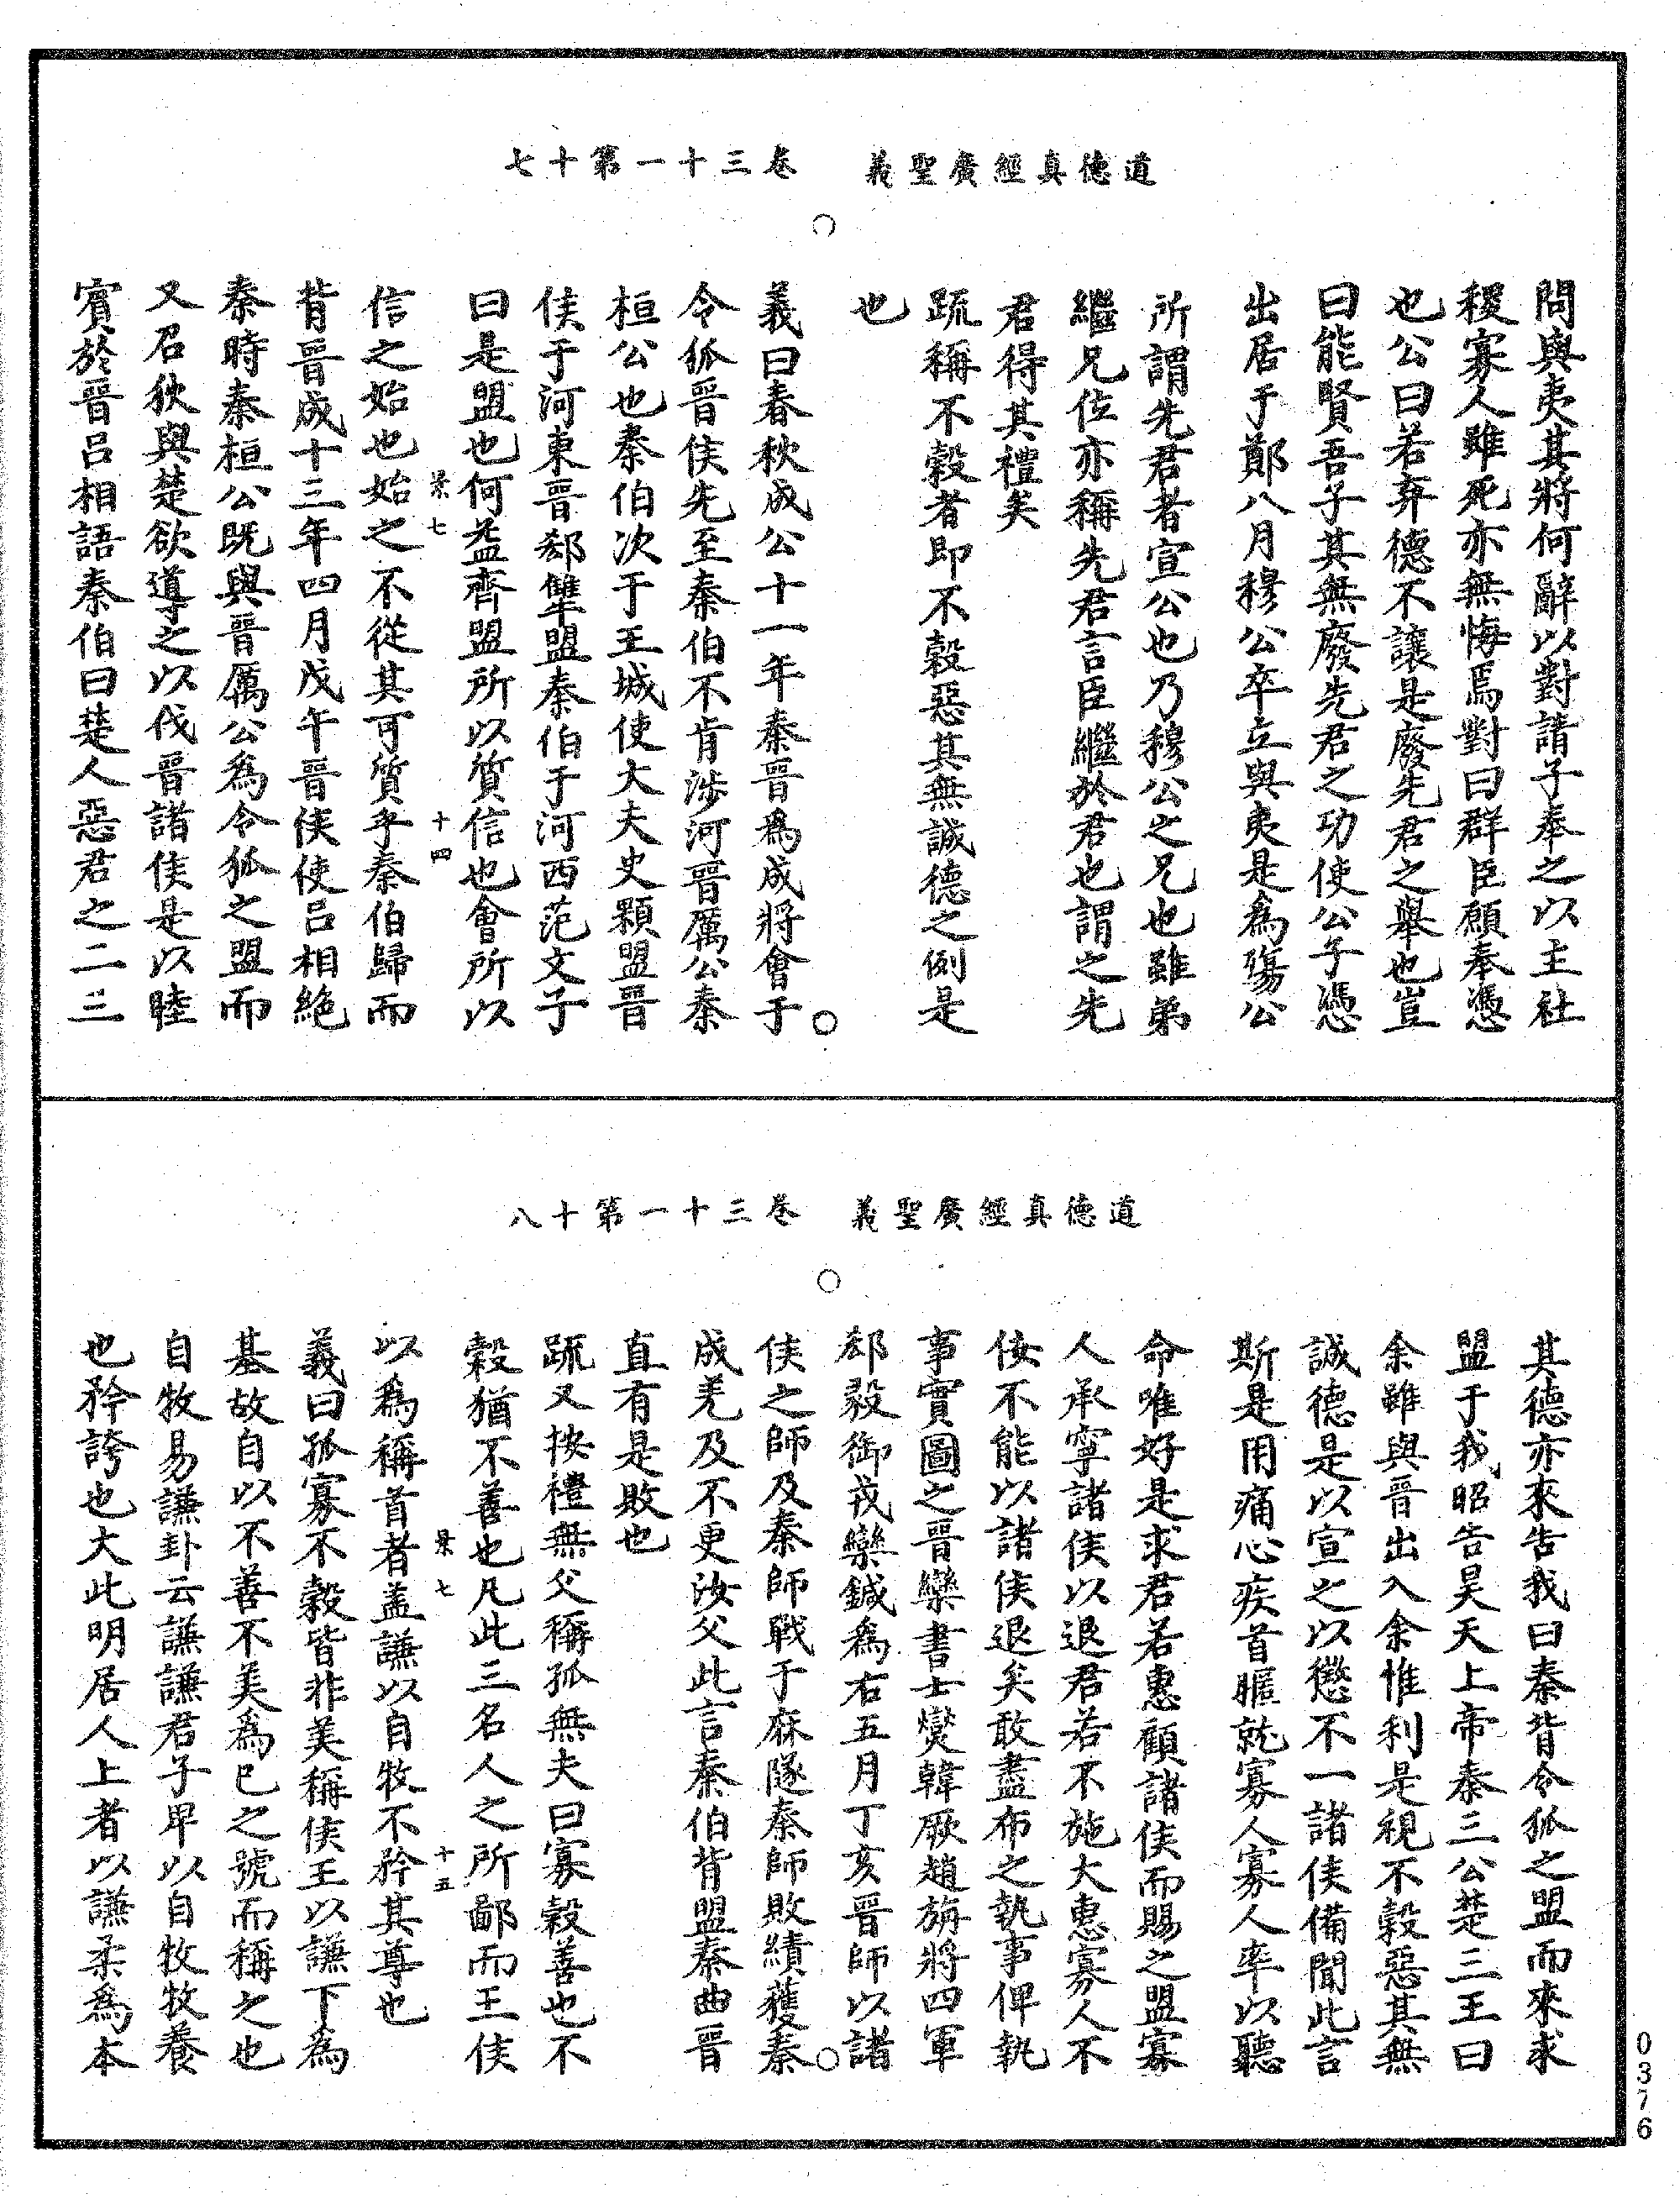 道德真經廣聖義　卷三十一第十七
問與夷其將何辭以對請子奉之以主社
稷寡人雖死亦無悔焉對曰群臣願奉馮
也公曰若弃德不讓是廢先君之舉也豈
曰能賢吾子其無廢先君之功使公子馮
出居于鄭八月穆公卒立與夷是為殤公
所謂先君者宣公也乃穆公之兄也雖弟
繼兄位亦稱先君言臣繼於君也謂之先
君得其禮矣
疏稱不穀者即不穀惡其無誠德之例是
也
義曰春秋成公十一年秦晉為成將會于
令狐晉侯先至秦伯不肯涉河晉厲公秦
桓公也秦伯次于王城使大夫史顆盟晉
侯于河東晉郄犨盟秦伯于河西范文子
曰是盟也何益齊盟所以質信也會所以
景七　十四
信之始也始之不從其可質乎秦伯歸而
背晉成十三年四月戊午晉侯使呂相絕
秦時秦桓公既與晉厲公為令狐之盟而
又召狄與楚欲導之以伐晉諸侯是以睦
賓於晉呂相語秦伯曰楚人惡君之二三
道德真經廣聖義　卷三十一第十八
其德亦來告我曰秦背令狐之盟而來求
盟于我昭告昊天上帝秦三公楚三王曰
余雖與晉出入余惟利是視不穀惡其無
誠德是以宣之以懲不一諸侯備聞此言
斯是用痛心疾首暱就寡人寡人率以聽
命唯好是求君若惠顧諸侯而賜之盟寡
人承寧諸侯以退君若不施大惠寡人不
佞不能以諸侯退矣敢盡布之執事俾執
事實圖之晉欒書士燮韓厥趙旃將四軍
郄毅御戎欒鍼為右五月丁亥晉師以諸
侯之師及秦師戰于麻隧秦師敗績獲秦
成差及不更汝父此言秦伯背盟秦曲晉
直有是敗也
疏又按禮無父稱孤無夫曰寡穀善也不
穀猶不善也凡此三名人之所鄙而王侯
景七　十五
以為稱首者蓋謙以自牧不矜其尊也
義曰孤寡不穀皆非美稱侯王以謙下為
基故自以不善不美為已之號而稱之也
自牧易謙卦云謙謙君子卑以自牧牧養
也矜誇也大此明居人上者以謙柔為本
0376